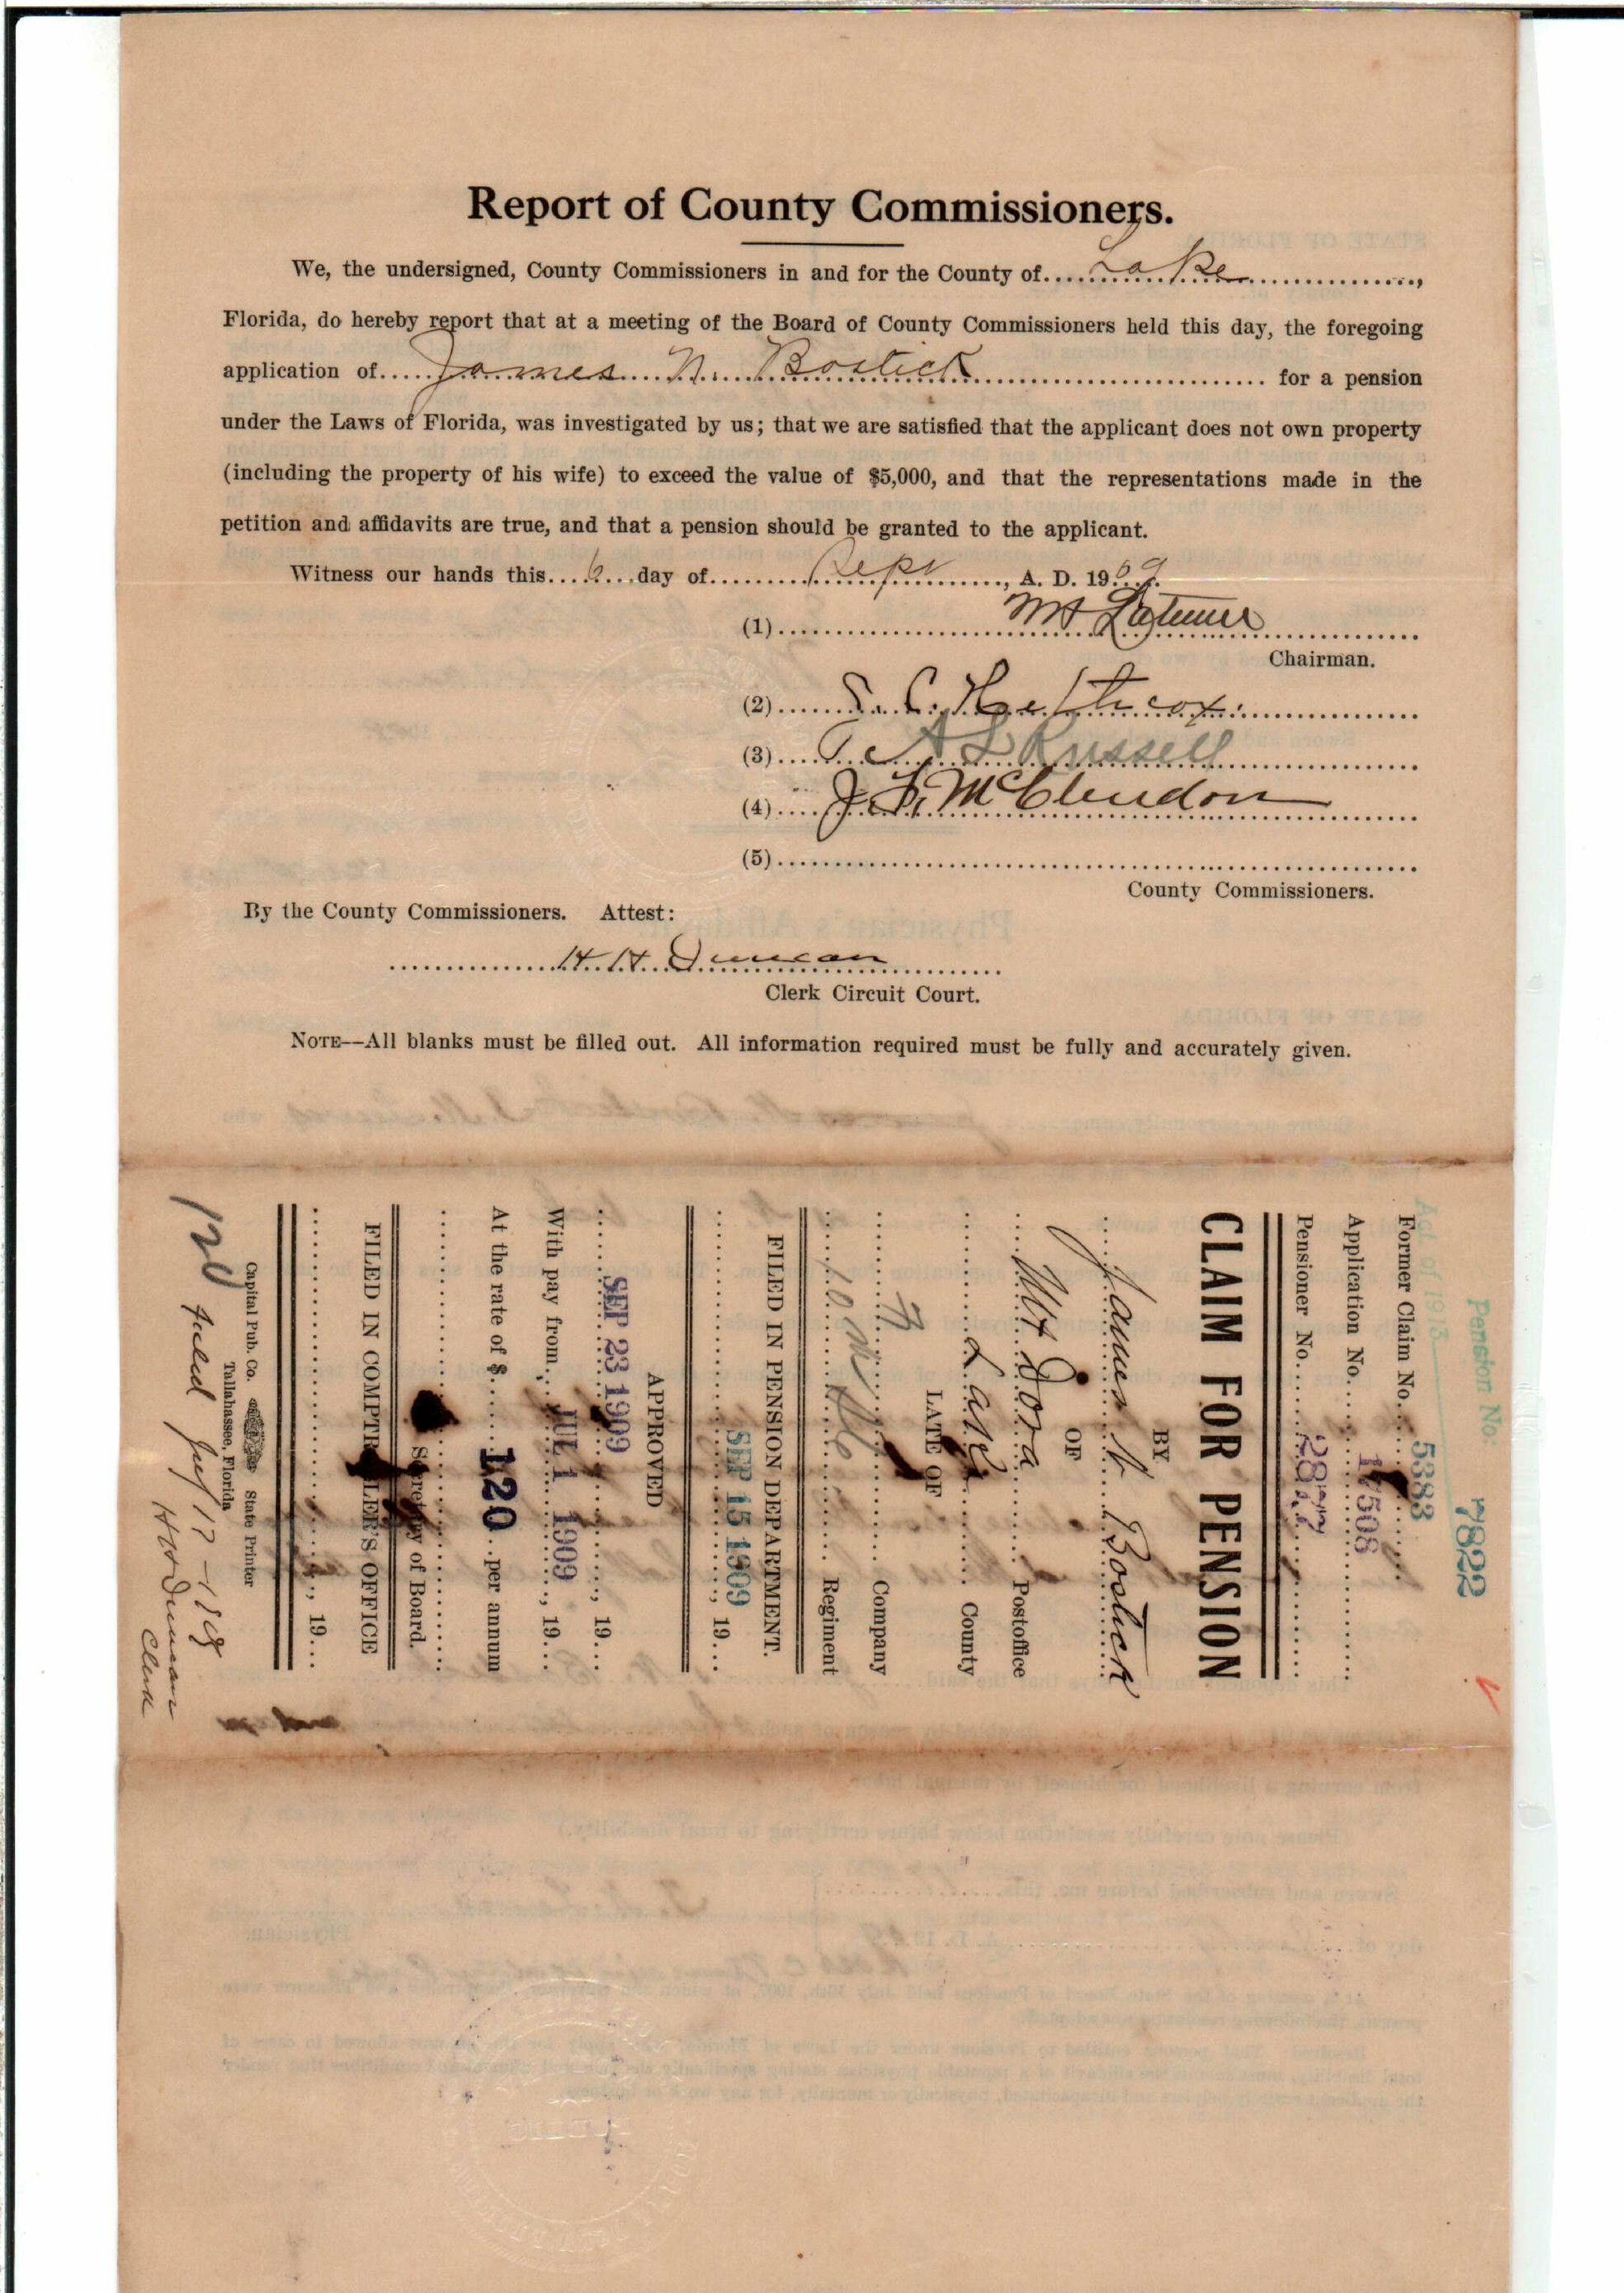 Report of County Commissioners.
We, the undersigned, County Commissioners in and for the County of....Lake....,
Florida, do hereby report that at a meeting of the Board of County Commissioners held this day, the foregoing
application of....James N. Bostick.... for a pension
under the Laws of Florida, was investigated by us; that we are satisfied that the applicant does not own property
(including the property of his wife) to exceed the value of $5,000, and that the representations made in the
petition and affidavits are true, and that a pension should be granted to the applicant.
Witness our hands this....6....day of....Sept...., A. D. 1909.
(1)....
Chairman.
(2)....
(3)....A L Russell
(4)....J. F. McClendon
(5)....
County Commissioners.
By the County Commissioners. Attest:
H H Duncan
Clerk Circuit Court.
NOTE—All blanks must be filled out. All information required must be fully and accurately given.
Pension No: 7822
Act of 1913
Former Claim No. 5383
Application No. 17508
Pensioner No.
CLAIM FOR PENSION
BY
James N. Bostick
OF
Mt Dora Postoffice
Lake County
LATE OF
Company
10 Regiment
FILED IN PENSION DEPARTMENT.
SEP 15 1909, 19...
APPROVED
SEP 23 1909, 19...
With pay from, JUL 1 1909, 19...
At the rate of $ 120 per annum
Secretary of Board.
FILED IN COMPTROLLER'S OFFICE
, 19...
Capital Pub. Co. State Printer
Tallahassee, Florida
120
Filed July 17
H H Duncan
Clerk